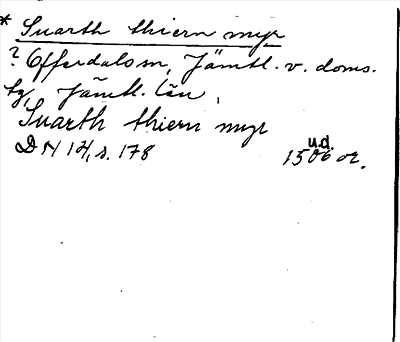 * Suarth thiern myr
? Offerdals sn, Jämtl. v. doms.
tg, Jämtl. län,
Suarth thiern myr
DN 14, s. 178 u.d. 1506 or.